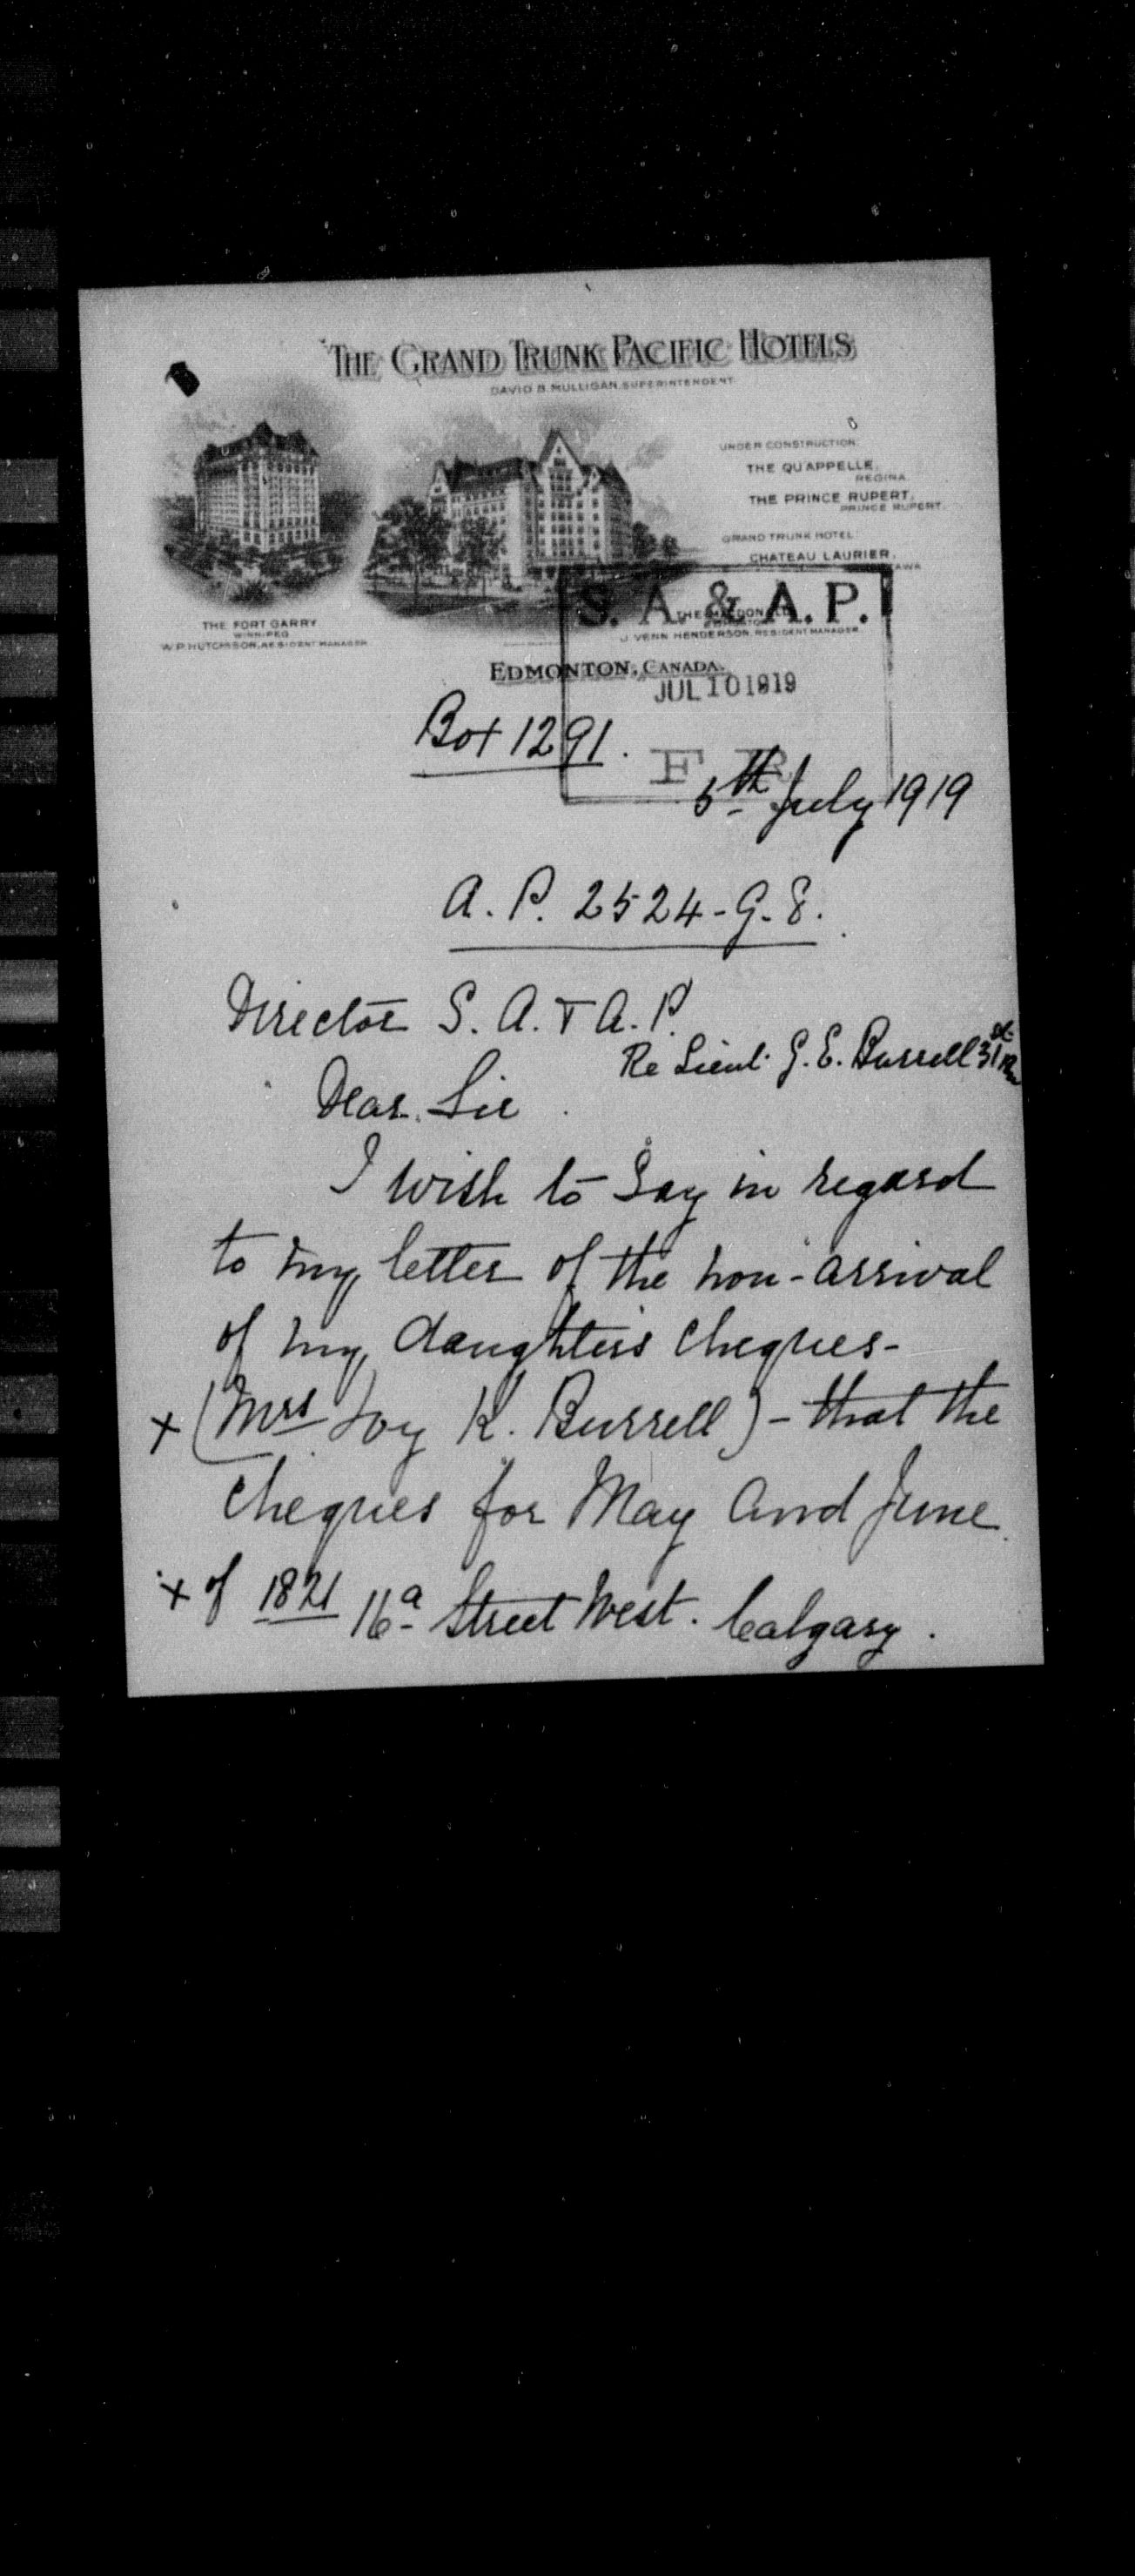 THE GRAND TRUNK PACIFIC HOTELS
DAVID B. MULLIGAN, SUPERINTENDENT
UNDER CONSTRUCTION:
THE QU'APPELLE,
REGINA.
THE PRINCE RUPERT,
PRINCE RUPERT.
GRAND TRUNK HOTEL:
CHATEAU LAURIER,
S. A. & A. P.
THE MACDONALD
EDMONTON
J. VENN HENDERSON, RESIDENT MANAGER
THE FORT GARRY
WINNIPEG
W.P. HUTCHISON, RESIDENT MANAGER
EDMONTON, CANADA.
JUL 10 1919
Box 1291.
F R
5th July 1919
A. P. 2524-G-8.
Director S. A. & A. P.
Re Lieut. G. E. Burrell 31st Bn
Dear Sir
I wish to say in regard
to my letter of the non-arrival
of my daughters cheques-
x (Mrs Joy K. Burrell) - that the
cheques for May and June
x of 1821 16a Street West. Calgary.